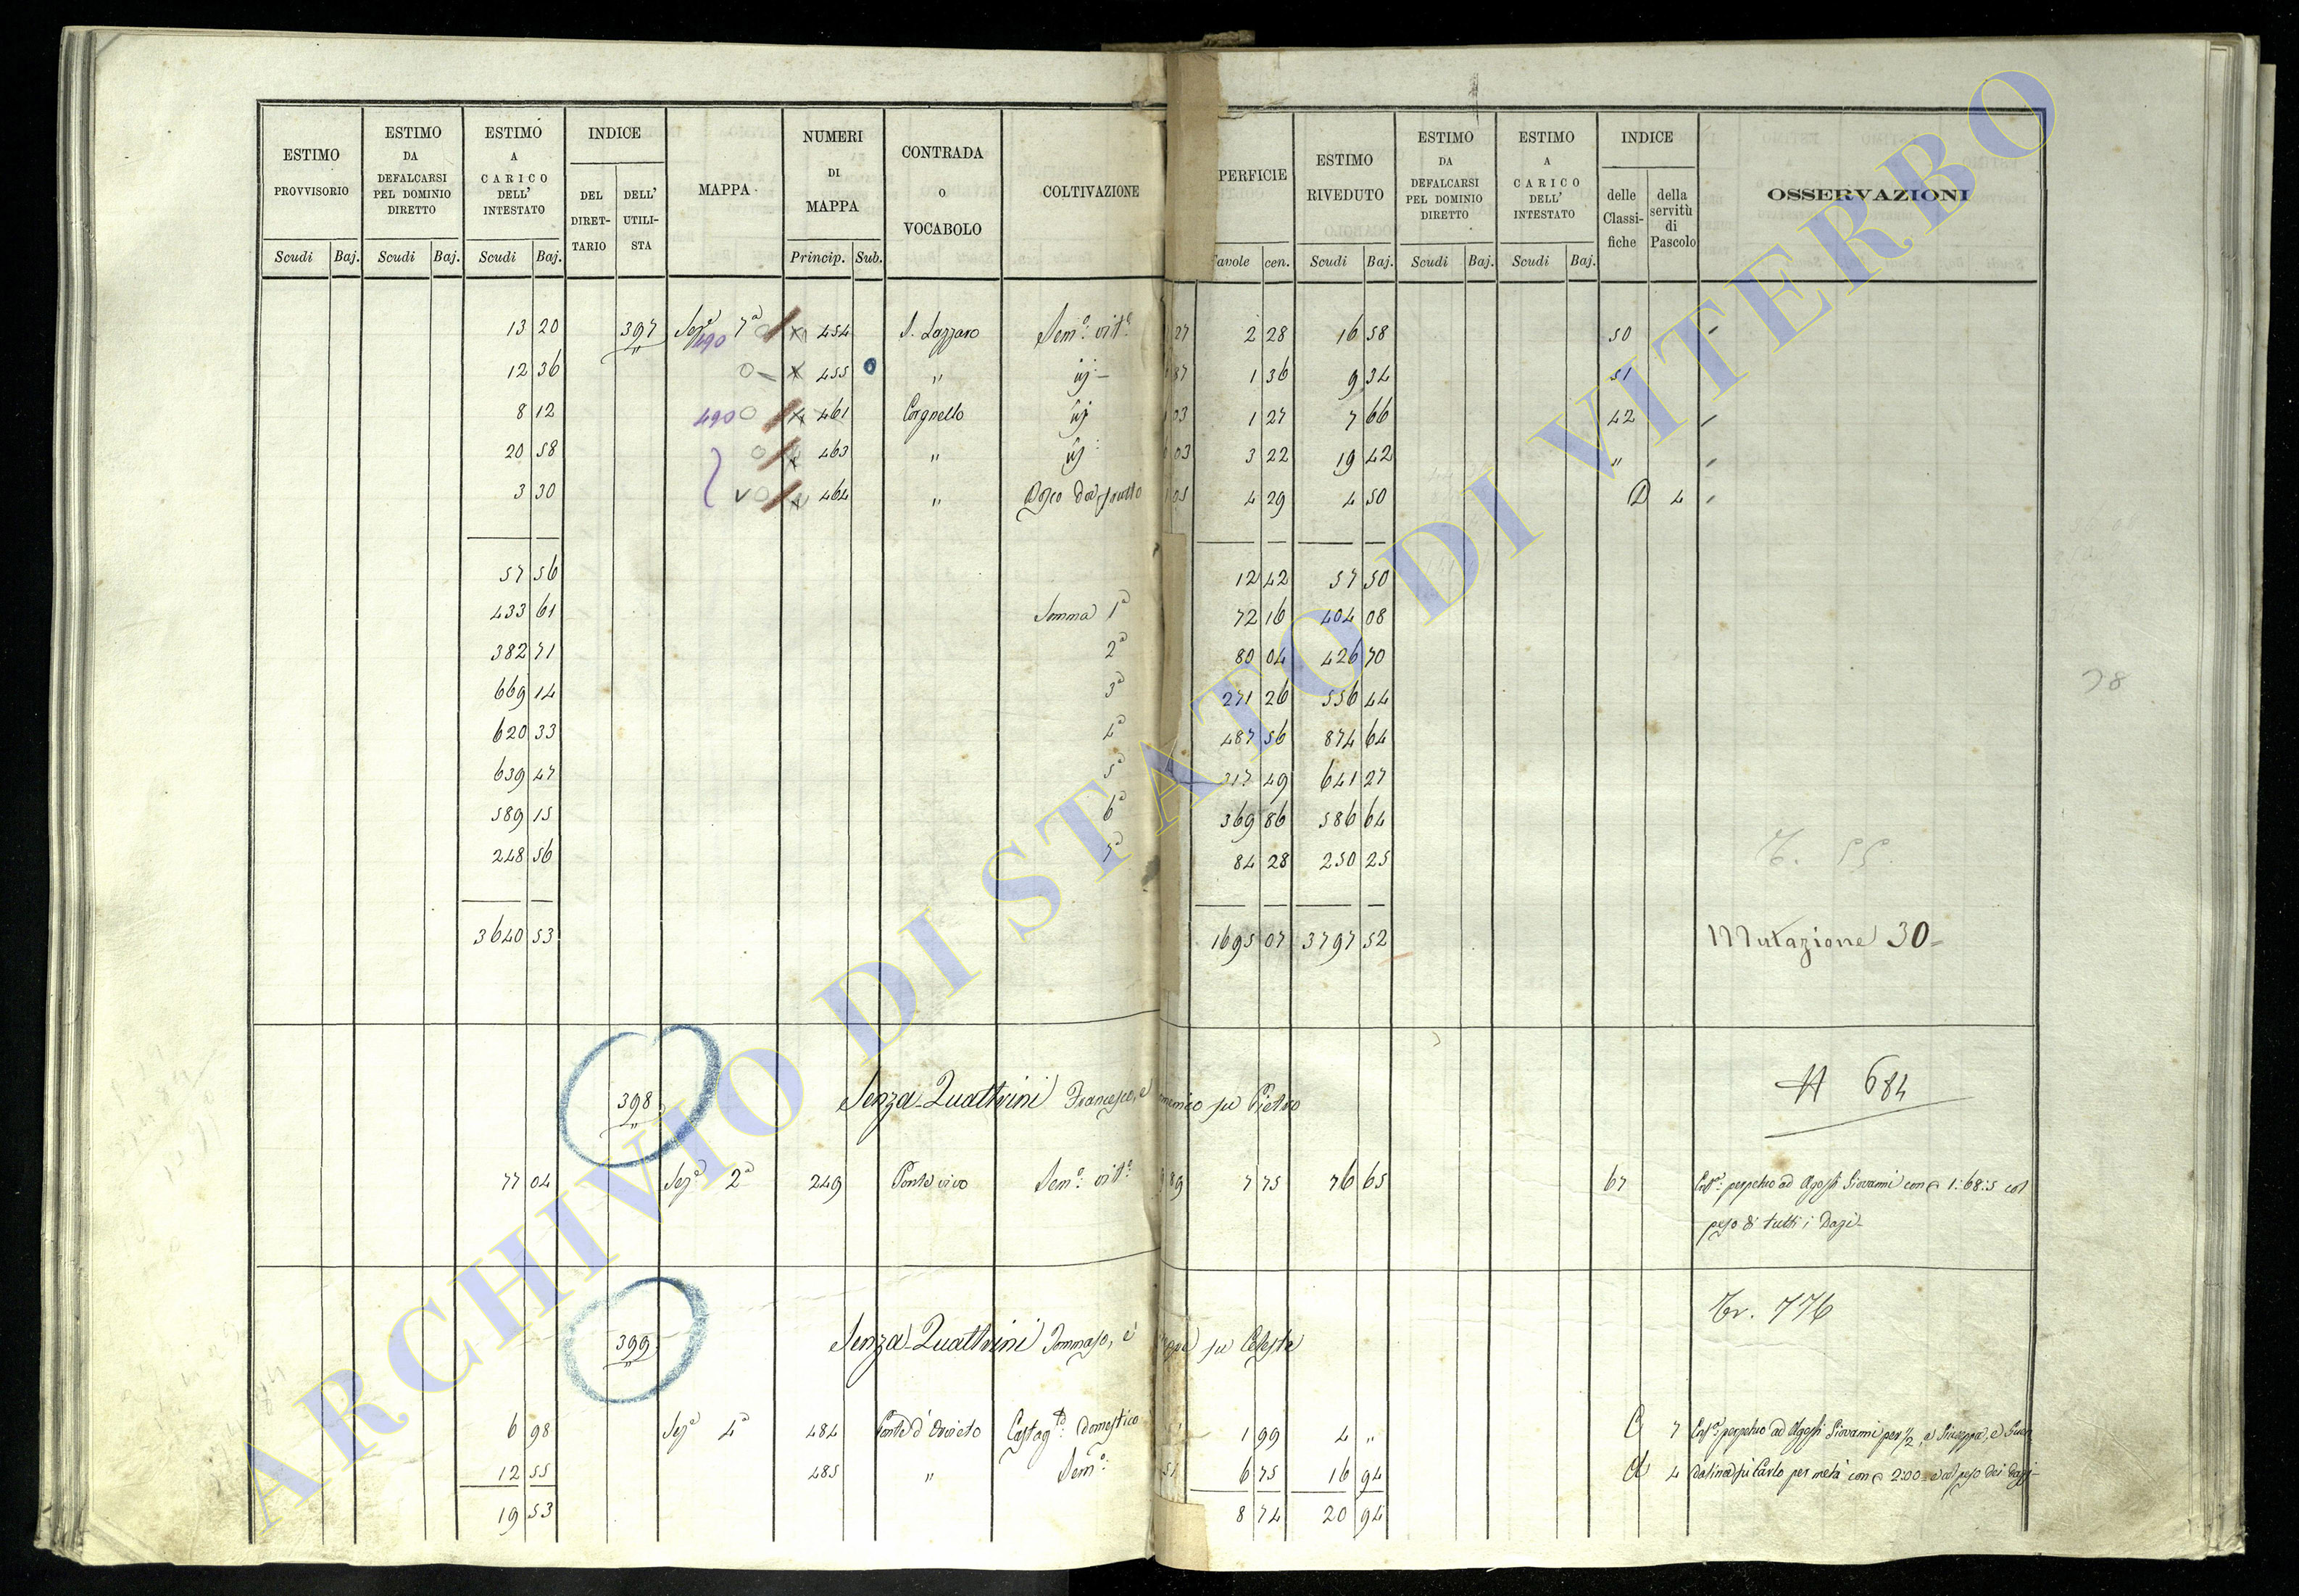 ESTIMO PROVVISORIO | ESTIMO DA DEFALCARSI PEL DOMINIO DIRETTO | ESTIMO A CARICO DELL' INTESTATO | INDICE | MAPPA | NUMERI DI MAPPA | CONTRADA o VOCABOLO | COLTIVAZIONE | PERFICIE | ESTIMO RIVEDUTO | ESTIMO DA DEFALCARSI PEL DOMINIO DIRETTO | ESTIMO A CARICO DELL' INTESTATO | INDICE | OSSERVAZIONI
DEL DIRET-TARIO | DELL' UTILI-STA | delle Classi-fiche | della servitù di Pascolo
Scudi | Baj. | Scudi | Baj. | Scudi | Baj. | Princip. | Sub. | avole | cen. | Scudi | Baj. | Scudi | Baj. | Scudi | Baj.
13 20 | 397 | Sez.e 7a | 490 | 454 | S. Lazzaro | Sem.o vit.o | 27 | 2 28 | 16 58 | 50
12 36 | 455 | " | 87 | 1 36 | 9 34 | 51
8 12 | 490 | 461 | Corgnello | 03 | 1 27 | 7 66 | 42
20 58 | 463 | " | 03 | 3 22 | 19 42 | "
3 30 | 464 | " | Bosco da frutto | 05 | 4 29 | 4 50 | D 4
57 56 | 12 42 | 57 50
433 61 | Somma 1a | 72 16 | 404 08
382 71 | 2a | 80 04 | 426 70
669 14 | 3a | 271 26 | 556 44
620 33 | 4a | 487 56 | 874 64
639 47 | 5a | 317 49 | 641 27
589 15 | 6a | 369 86 | 586 64
248 56 | 7a | 84 28 | 250 25
3640 53 | 1695 07 | 3797 52 | Mutazione 30
398 | Senza-Quattrini Francesco, e | menico fu Pietro | 684
77 04 | Sez.e 2a | 249 | Ponte vivo | Sem.o vit.o | 89 | 7 75 | 76 65 | 67 | perpetuo ad Agosti Giovanni con 1:68:5 col
peso di tutti i Dazi
Tr. 776
399 | Senza-Quattrini Tommaso, e | fu Celeste
6 98 | Sez.e 4a | 484 | Ponte d'Orvieto | Castag.to Domestico | 1 99 | 4 " | C 7 | perpetuo ad Agosti Giovanni per 1/2, e
12 55 | 485 | " | Sem.o | 51 | 6 75 | 16 94 | 4 | fu Carlo per metà con 2:00 peso dei Dazi
19 53 | 8 74 | 20 94
ARCHIVIO DI STATO DI VITERBO